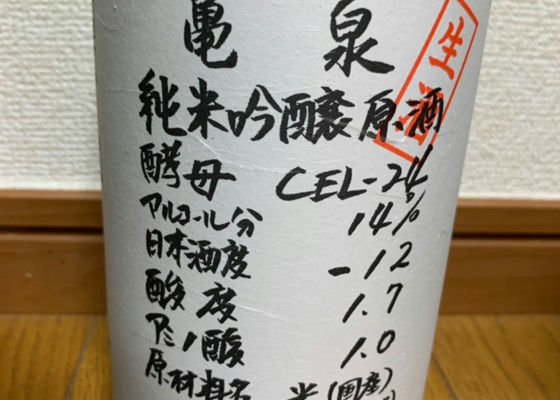 亀泉
生酒
純米吟醸原酒
酵母 CEL-24
アルコール分 14%
日本酒度 -12
酸度 1.7
アミノ酸 1.0
原材料名 米(国産)